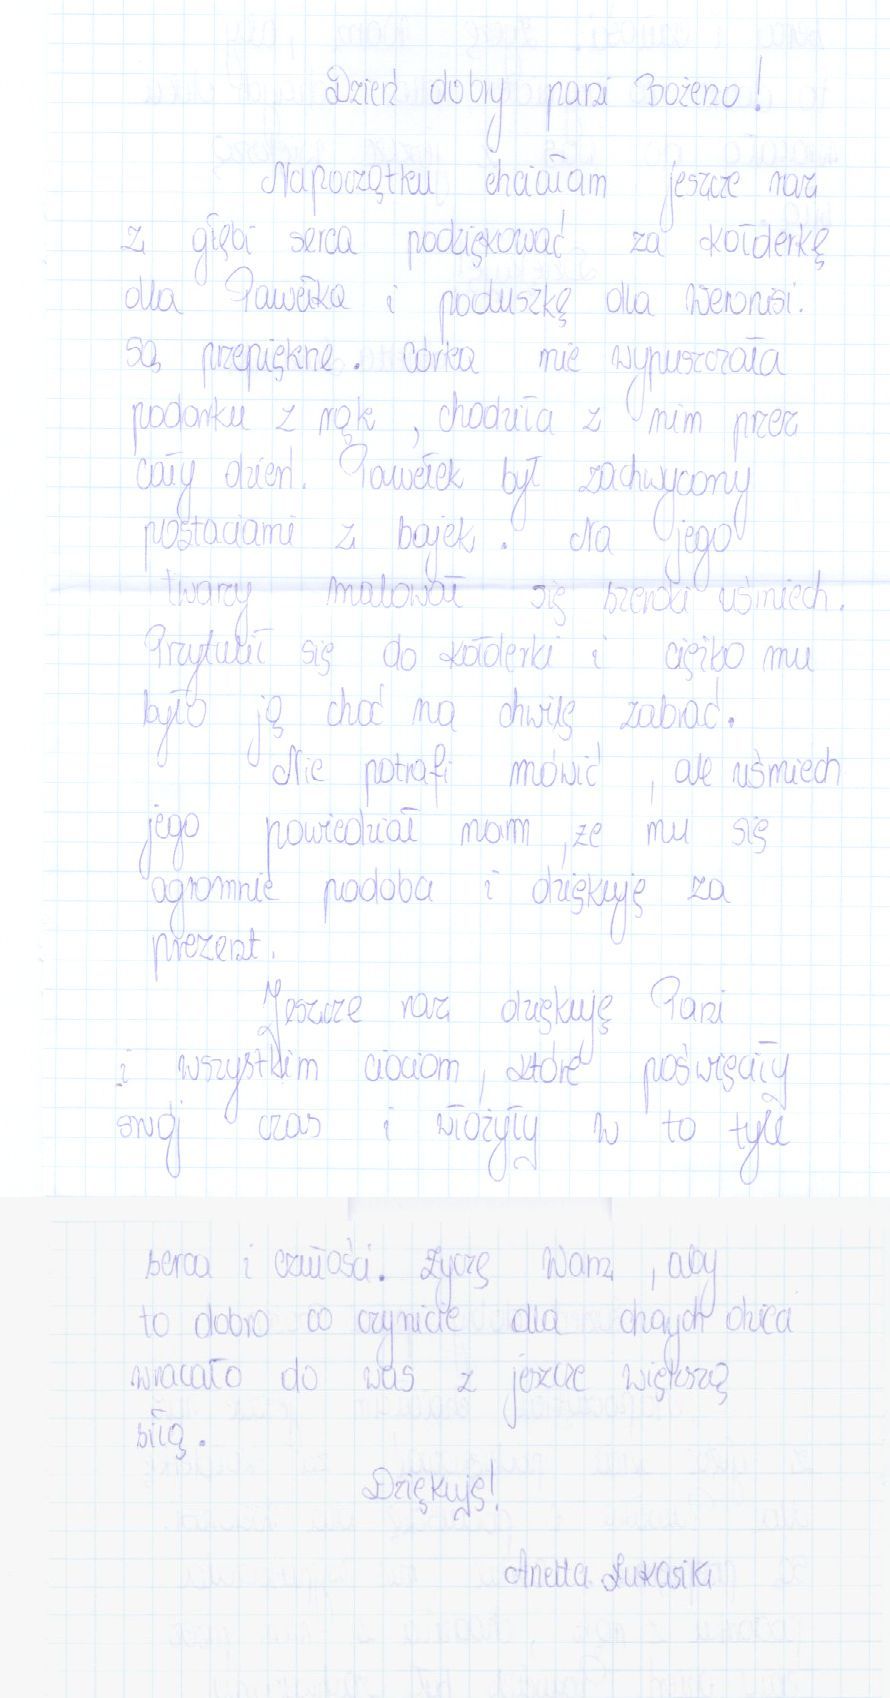 Dzień dobry pani Bożeno!
Napoczątku chciałam jeszcze raz
z głębi serca podziękować za kołderkę
dla Pawełka i poduszkę dla Weronisi.
są przepiękne. Córka nie wypuszczała
podarku z rąk, chodziła z nim przez
cały dzień. Pawełek był zachwycony
postaciami z bajek. Na jego
twarzy malował się szeroki uśmiech.
Przytulił się do kołderki i ciężko mu
było ją choć na chwilę zabrać.
Nie potrafi mówić, ale uśmiech
jego powiedział nam, że mu się
ogromnie podoba i dziękuję za
prezent.
Jeszcze raz dziękuję Pani
i wszystkim ciociom, które poświęciły
swój czas i włożyły w to tyle
serca i czułości. Życzę Wam, aby
to dobro co czynicie dla chorych dzieci
wracało do was z jeszcze większą
siłą.
Dziękuję!
Anetta